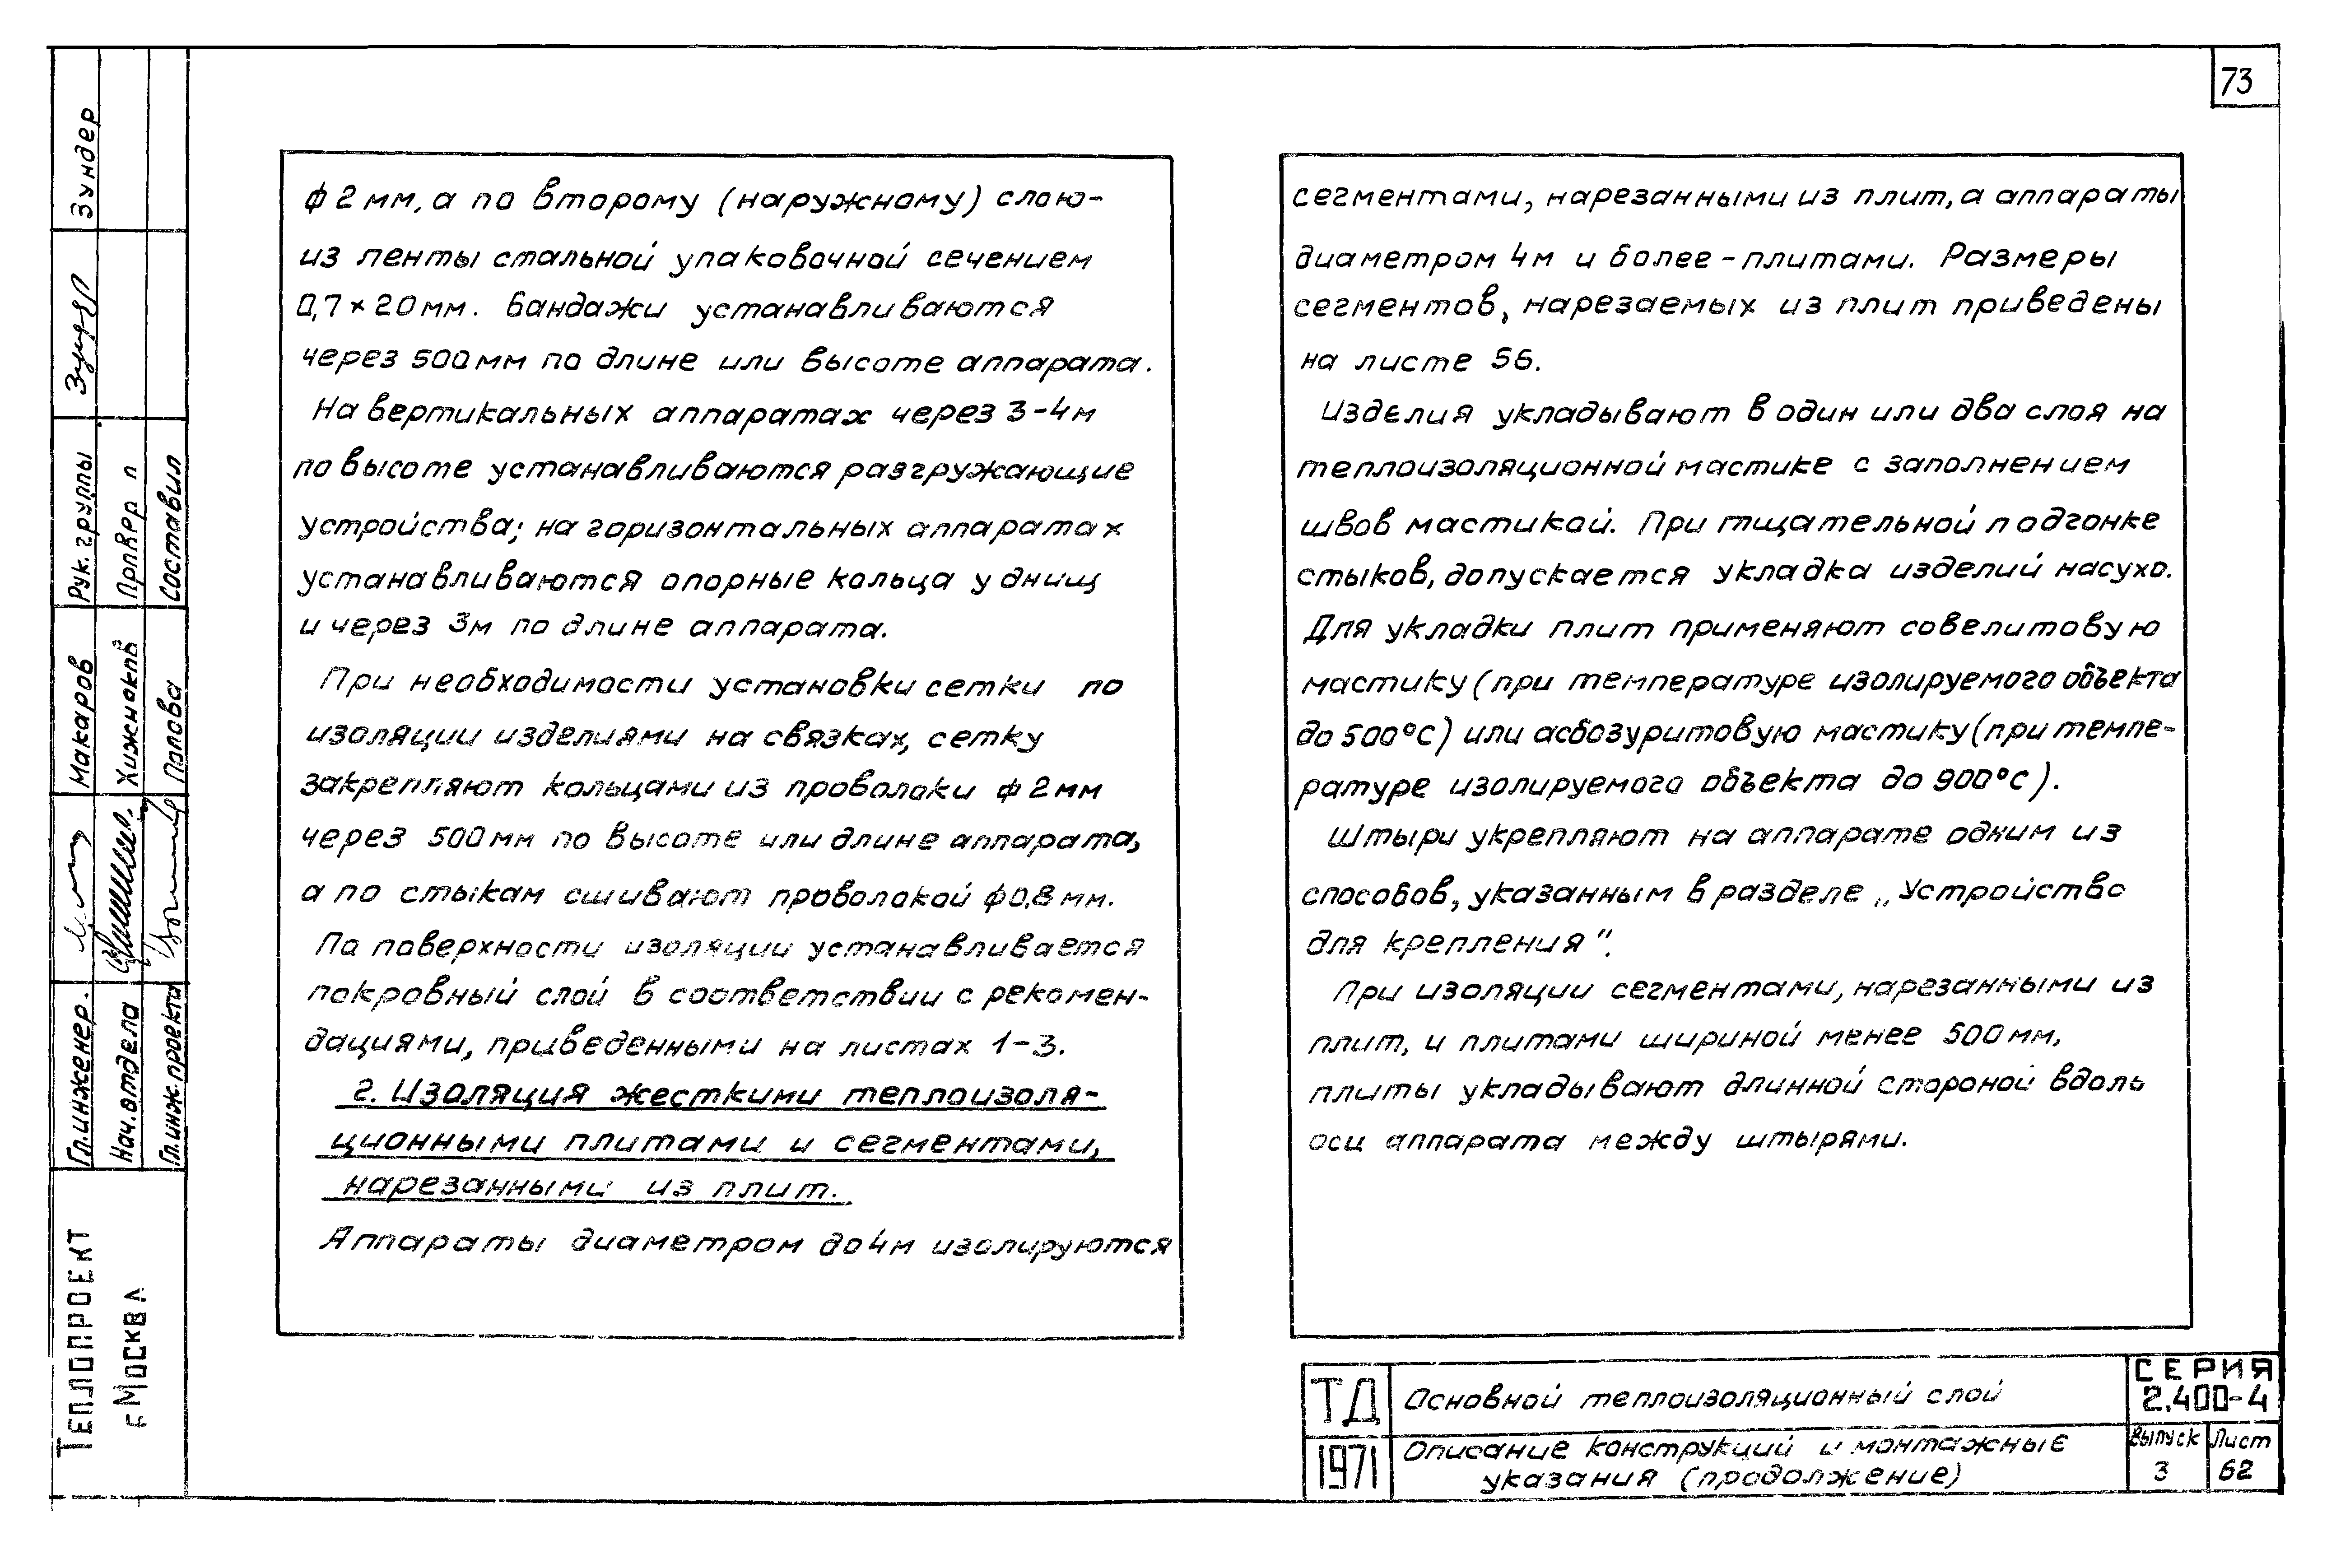 73
ф 2 мм, а по второму (наружному) слою-
из ленты стальной упаковочной сечением
0,7 × 20 мм. Бандажи устанавливаются
через 500 мм по длине или высоте аппарата.
На вертикальных аппаратах через 3-4 м
по высоте устанавливаются разгружающие
устройства; на горизонтальных аппаратах
устанавливаются опорные кольца у днищ
и через 3 м по длине аппарата.
При необходимости установки сетки по
изоляции изделиями на связках, сетку
закрепляют кольцами из проволоки ф 2 мм
через 500 мм по высоте или длине аппарата,
а по стыкам сшивают проволокой ф 0,8 мм.
По поверхности изоляции устанавливается
покровный слой в соответствии с рекомен-
дациями, приведенными на листах 1-3.
2. Изоляция жесткими теплоизоля-
ционными плитами и сегментами,
нарезанными из плит.
Аппараты диаметром до 4 м изолируются
сегментами, нарезанными из плит, а аппараты
диаметром 4 м и более - плитами. Размеры
сегментов, нарезаемых из плит приведены
на листе 56.
Изделия укладывают в один или два слоя на
теплоизоляционной мастике с заполнением
швов мастикой. При тщательной подгонке
стыков, допускается укладка изделий насухо.
Для укладки плит применяют совелитовую
мастику (при температуре изолируемого объекта
до 500°С) или асбозуритовую мастику (при темпе-
ратуре изолируемого объекта до 900°С).
Штыри укрепляют на аппарате одним из
способов, указанным в разделе „Устройство
для крепления".
При изоляции сегментами, нарезанными из
плит, и плитами шириной менее 500 мм,
плиты укладывают длинной стороной вдоль
оси аппарата между штырями.
Гл. инженер. Макаров Рук. группы Зундер
Нач. отдела Хижняков
Гл. инж. проекта Попова Составил
ТЕПЛОПРОЕКТ
г. МОСКВА
ТД
1971
Основной теплоизоляционный слой
Описание конструкций и монтажные
указания (продолжение)
СЕРИЯ
2.400-4
Выпуск Лист
3 62